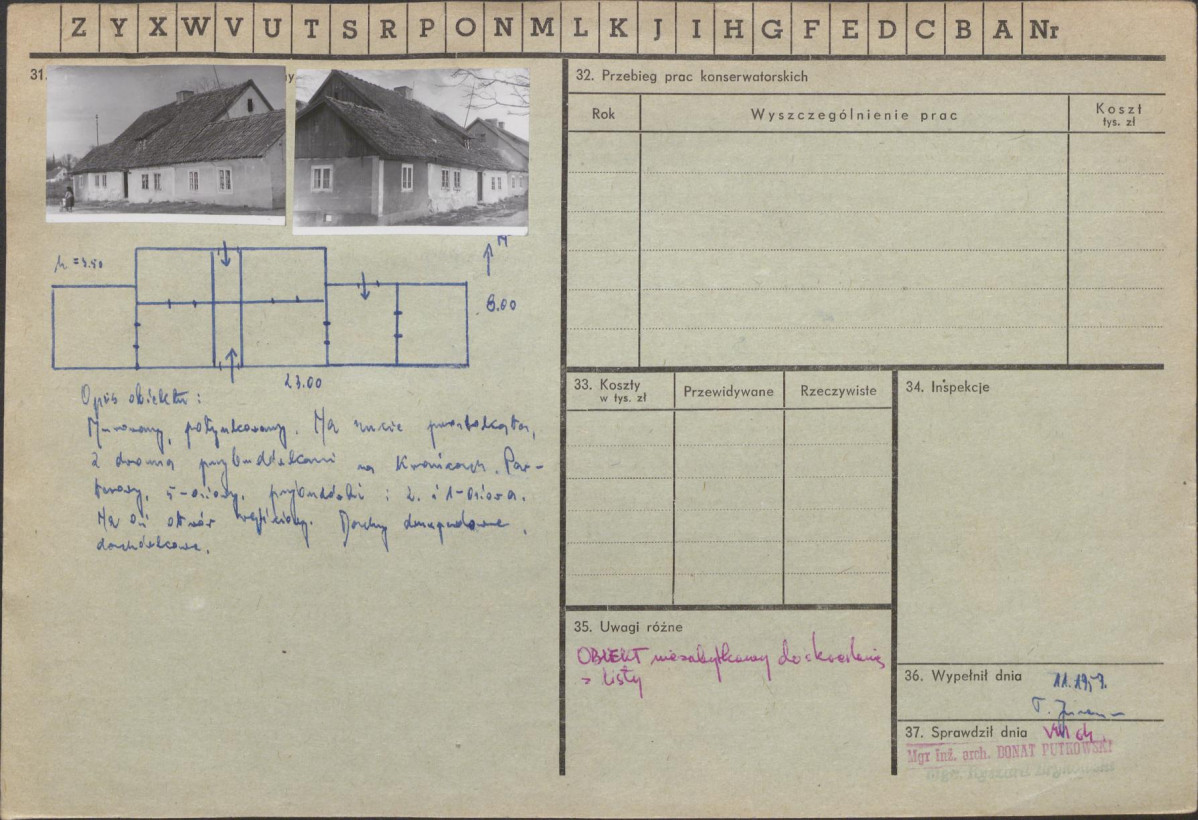 Z Y X W V U T S R P O N M L K J I H G F E D C B A Nr
31.
ny
h = 3.50
N
8.00
23.00
Opis obiektu:
Murowany, potynkowany. Na rzucie prostokąta,
z dwoma przybudówkami na krańcach. Par-
terowy, 5-osiowy, przybudówki : 2. i 1-osiowa.
Na osi otwór wejściowy. Dachy dwuspadowe,
dachówkowe.
32. Przebieg prac konserwatorskich
Rok
Wyszczególnienie prac
Koszt
tys. zł
33. Koszty
w tys. zł
Przewidywane
Rzeczywiste
34. Inspekcje
35. Uwagi różne
OBIEKT niezabytkowy do skreślenia
z listy
36. Wypełnił dnia
11.1959.
T.
37. Sprawdził dnia
VIII 64
Mgr inż. arch. DONAT PUTKOWSKI
Mgr. Ryszard